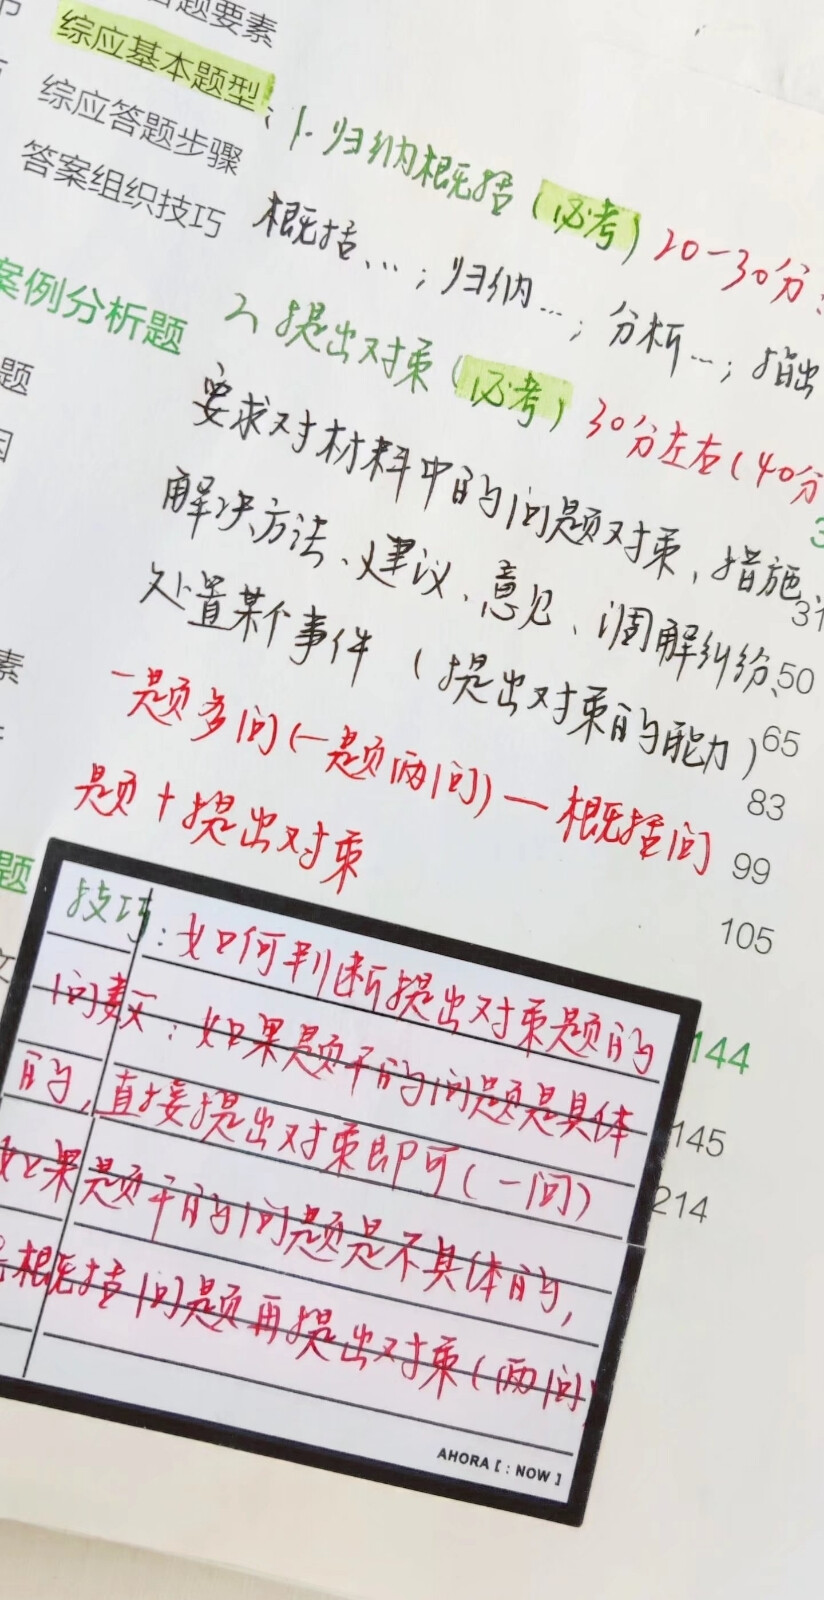 答题要素
综应基本题型：1. 归纳概括（必考）20-30分：
综应答题步骤
概括…；归纳…；分析…；指出
答案组织技巧
案例分析题
2、提出对策（必考）30分左右（40分
题
要求对材料中的问题对策、措施、
解决方法、建议、意见、调解纠纷、
31
处置某个事件（提出对策的能力）
50
素
65
一题多问（一题两问）— 概括问
83
题＋提出对策
99
题
105
技巧：如何判断提出对策题的
144
问数：如果题干的问题是具体
的，直接提出对策即可（一问）
145
如果题干的问题是不具体的，
214
概括问题再提出对策（两问）
AHORA [ : NOW ]